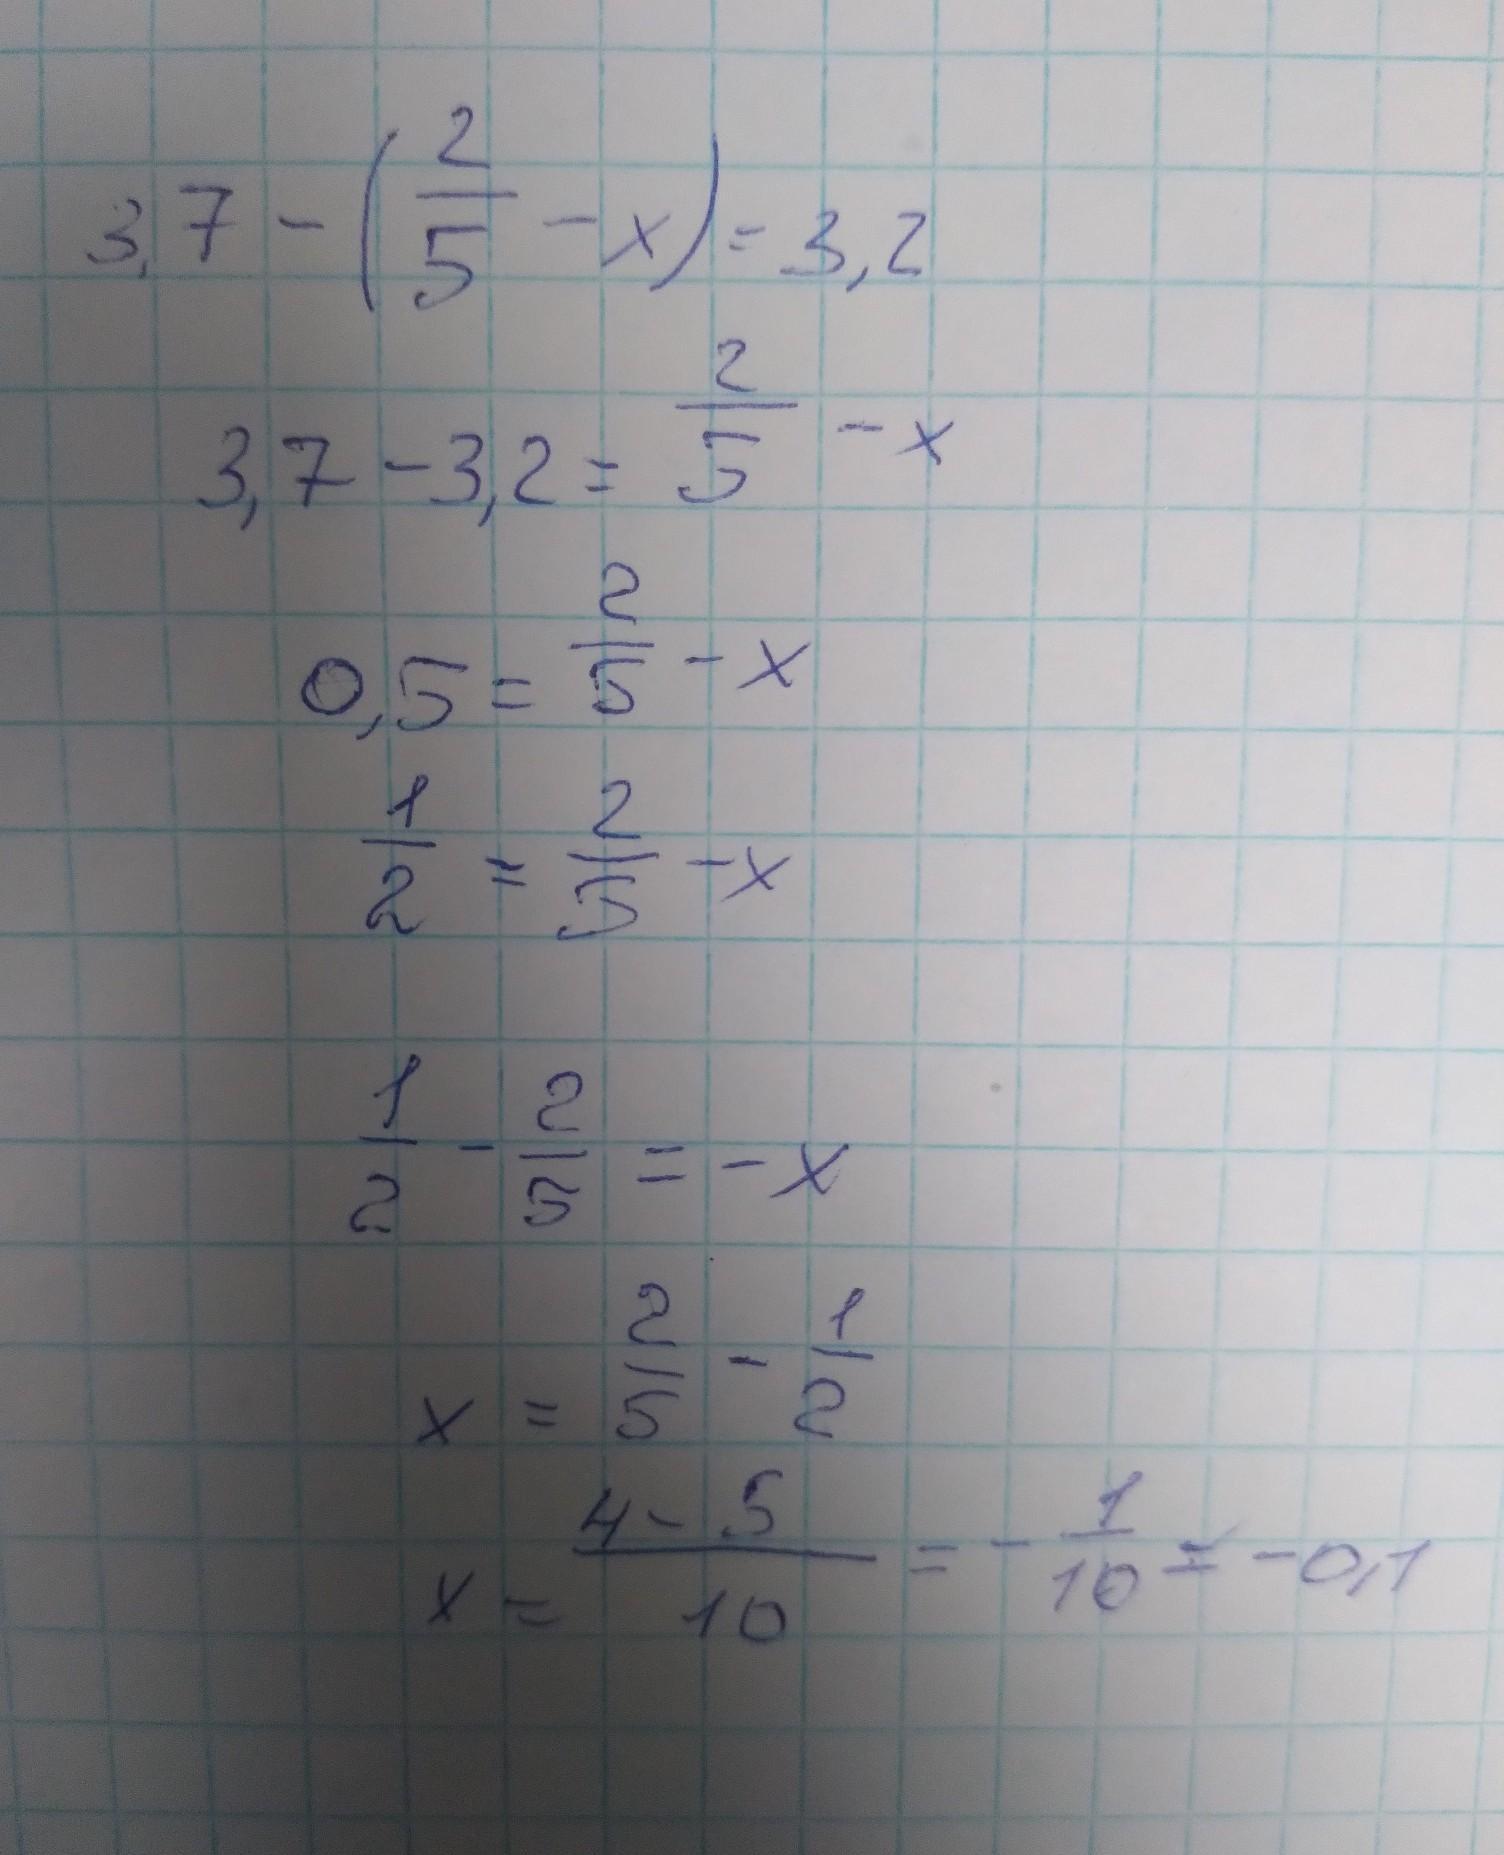 3,7 - (2/5 - x) = 3,2
3,7 - 3,2 = 2/5 - x
0,5 = 2/5 - x
1/2 = 2/5 - x
1/2 - 2/5 = - x
x = 2/5 - 1/2
x = (4 - 5)/10 = - 1/10 = - 0,1